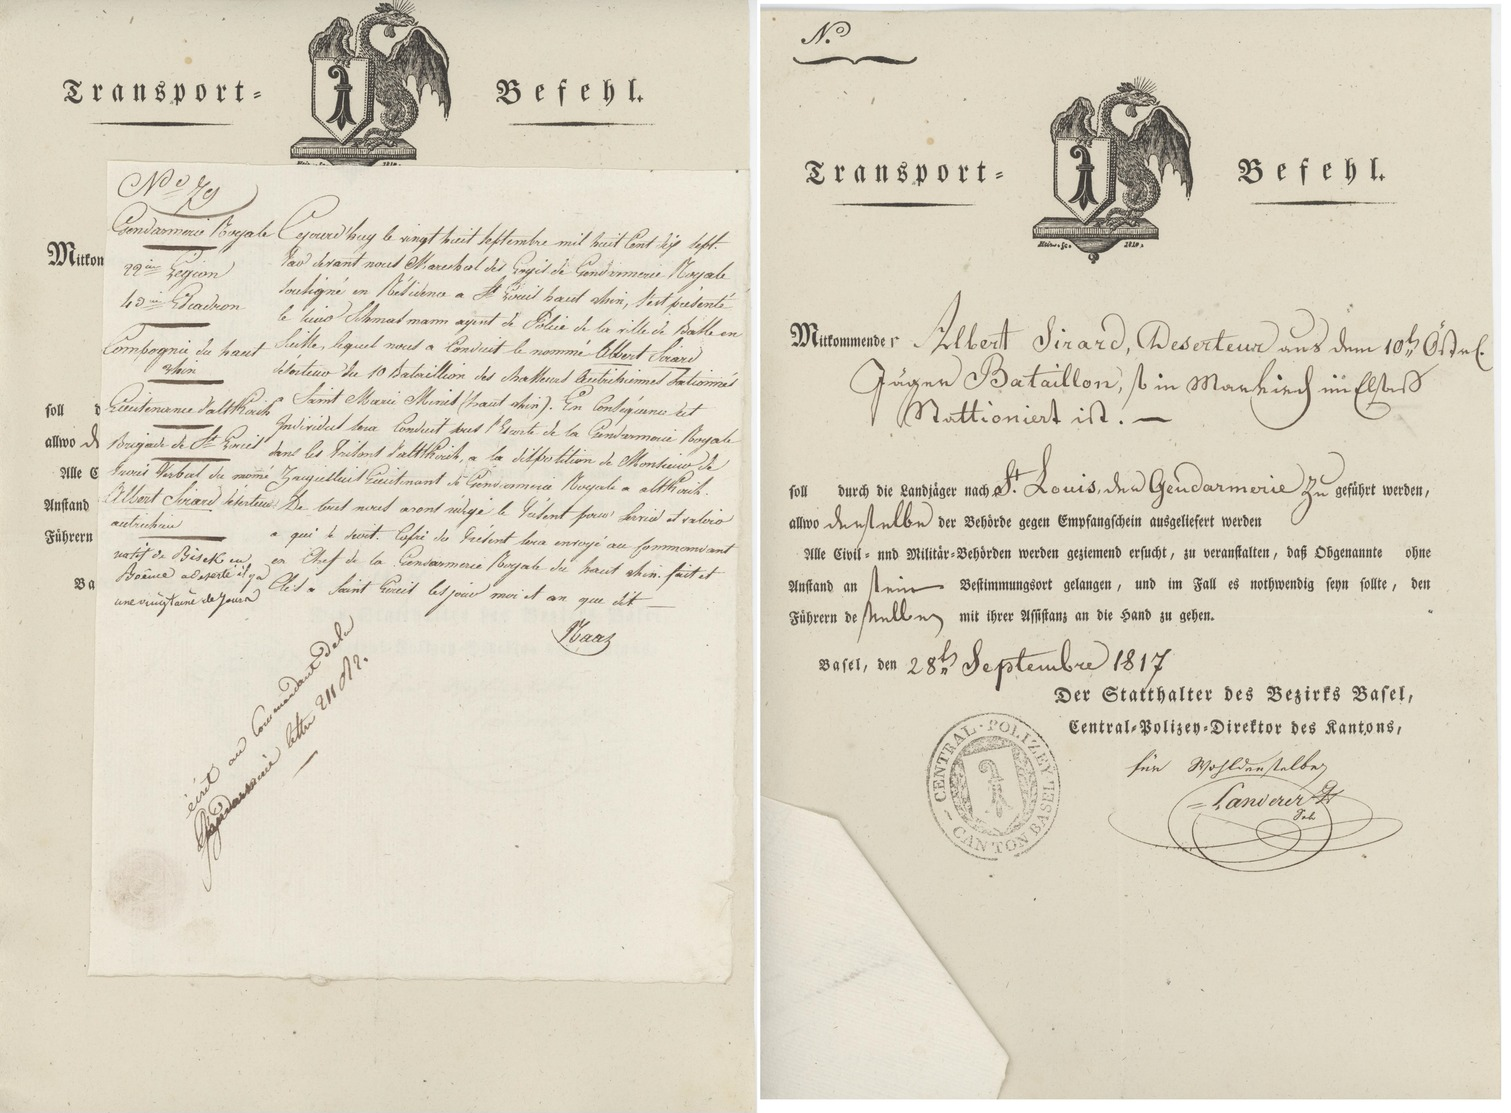 Transport-
Befehl.
No 79
Gendarmerie Royale
22me Légion
43me Escadron
Compagnie du haut
rhin
Lieutenance d'altKirch
Brigade de St Louis
Procès Verbal du nommé
Albert Sirard déserteur
autrichien
natif de Bisek en
Boême a déserté il y a
une vingtaine de Jours
Cejourd'huy le vingt huit septembre mil huit Cent dix sept.
Par devant nous Marechal des Logis de Gendarmerie Royale
soussigné en Résidence a St Louis haut rhin, s'est présenté
le sieur agent de Police de la ville de Basle en
Suisse, lequel nous a conduit le nommé Albert Sirard
déserteur du 10 Bataillion des Chasseurs Autrichiennes stationnés
Saint Marie Mines (haut rhin). En Conséquence cet
Individut sera Conduit sous l'Escorte de la Gendarmerie Royale
dans les Prisons d'altKirch, a la disposition de Monsieur de
Lieutenant de Gendarmerie Royale a altKirch.
De tout nous avons rédigé le Présent pour servir et valoir
a qui de droit. Copie du Présent sera envoyé au Commandant
en Chef de la Gendarmerie Royale du haut rhin. fait et
Clos a Saint Louis les jour moi et an que dit —
écrit au Commandant de la
gendarmerie lettre
Mitkom
soll d
allwo de
Alle C
Anstand
Führern
Ba
No
Transport-
Befehl.
1810.
Mitkommender Albert Sirard, Deserteur aus dem 10ts Östrl.
Jäger Bataillon, so in Markirch im Elsaß
stattioniert ist. —
soll durch die Landjäger nach St. Louis, der Gendarmerie zu geführt werden,
allwo derselbe der Behörde gegen Empfangschein ausgeliefert werden
Alle Civil- und Militär-Behörden werden geziemend ersucht, zu veranstalten, daß Obgenannte ohne
Anstand an sein Bestimmungsort gelangen, und im Fall es nothwendig seyn sollte, den
Führern desselben mit ihrer Assistanz an die Hand zu gehen.
Basel, den 28ten Septembre 1817
Der Statthalter des Bezirks Basel,
Central-Polizey-Direktor des Kantons,
für Wohldenselben
Landerer
CENTRAL-POLIZEY-
CANTON BASEL